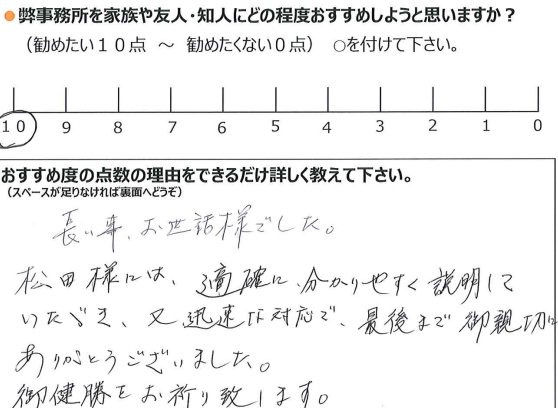 ●弊事務所を家族や友人・知人にどの程度おすすめしようと思いますか？
（勧めたい１０点　～　勧めたくない０点）　○を付けて下さい。
10 9 8 7 6 5 4 3 2 1 0
おすすめ度の点数の理由をできるだけ詳しく教えて下さい。
（スペースが足りなければ裏面へどうぞ）
長い事、お世話様でした。
松田様には、適確に、分かりやすく説明して
いただき、又迅速な対応で、最後まで御親切に
ありがとうございました。
御健勝をお祈り致します。